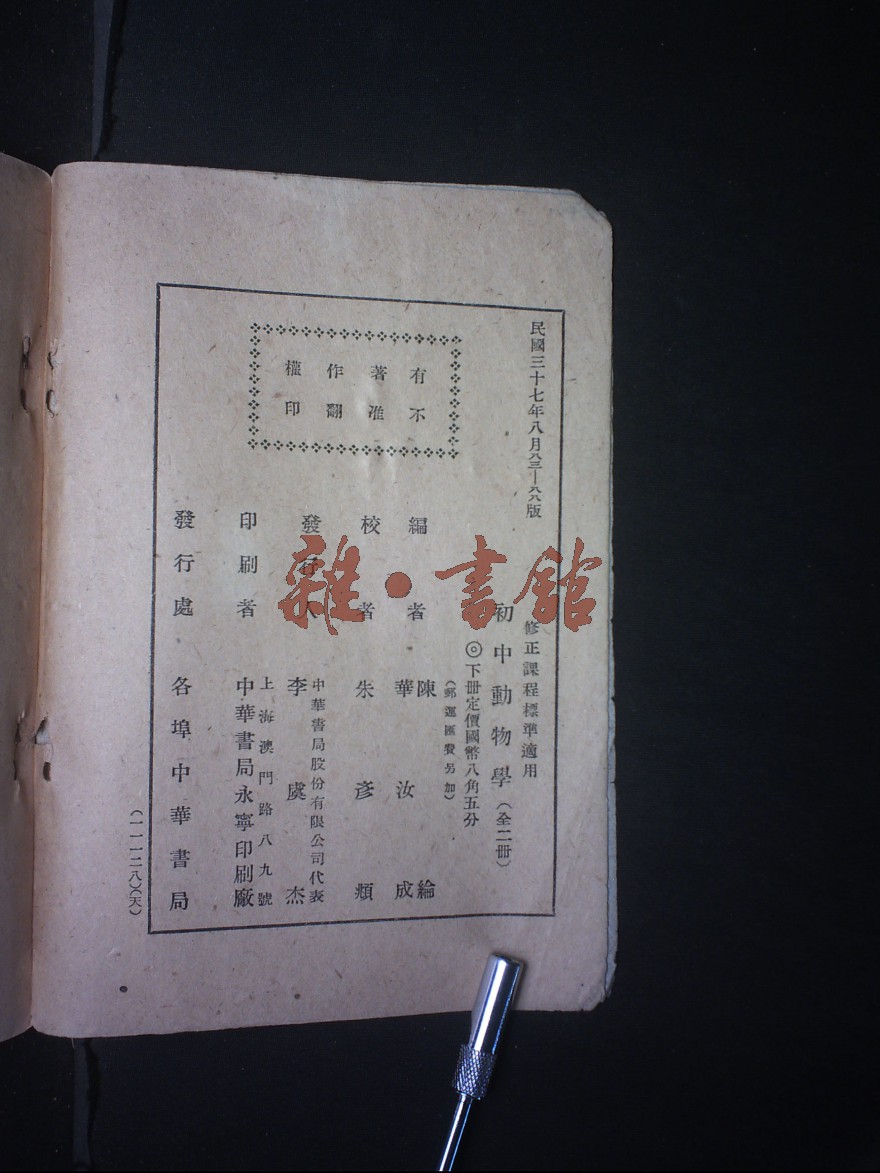 民國三十七年八月八三—六六版
修正課程標準適用
初中動物學（全二冊）
◎下冊定價國幣八角五分
（郵運匯費另加）
有不
著准
作翻
權印
編者 陳綸
華汝成
校者 朱彥頫
發行人 李虞杰
中華書局股份有限公司代表
印刷者 上海澳門路八九號
中華書局永寧印刷廠
發行處 各埠中華書局
（一一一二八）（天）
雜·書館